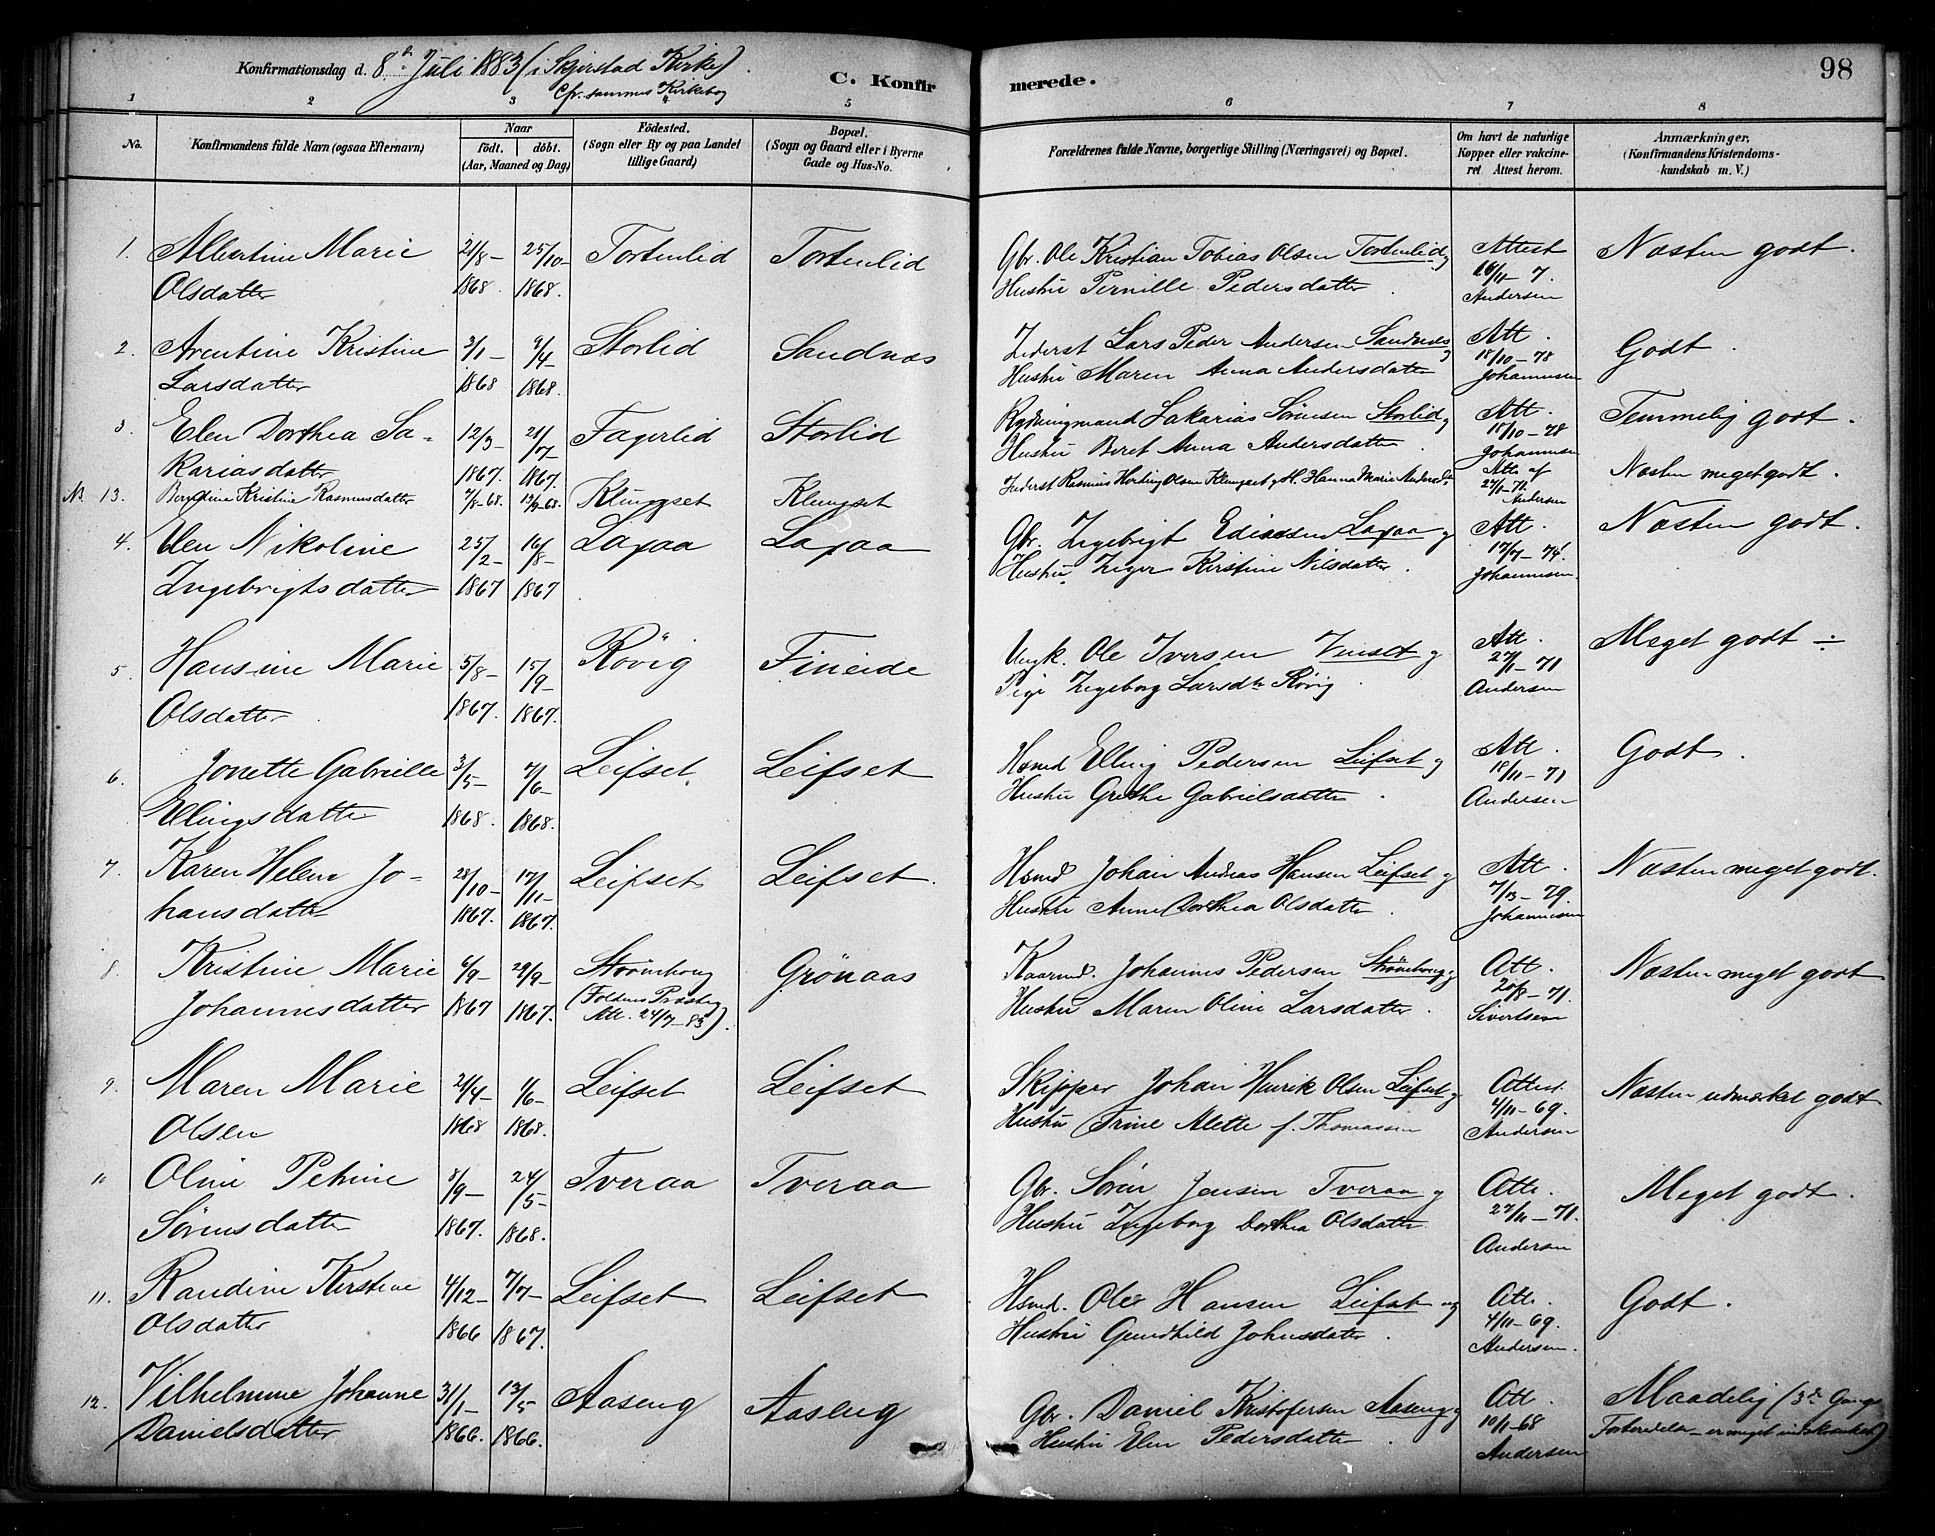 98
Konfirmationsdag d. 8de Juli 1883 (i Skjerstad Kirke).
Cfr. sammes Kirkebog
C. Konfirmerede.
1 2 3 5 6 7 8
No.
Konfirmandens fulde Navn (ogsaa Efternavn)
Naar
födt. döbt.
(Aar, Maaned og Dag)
Födested.
(Sogn eller By og paa Landet
tillige Gaard)
Bopæl.
(Sogn og Gaard eller i Byerne
Gade og Hus-No.
Forældrenes fulde Navne, borgerlige Stilling (Næringsvei) og Bopæl.
Om havt de naturlige
Kopper eller vakcineret
Attest herom.
Anmærkninger,
(Konfirmandens Kristendomskundskab
m. V.)
1. Albertine Marie 21/8- 25/10- Tortenlid Tortenlid Gbr. Ole Kristian Tobias Olsen Tortenlid og Attest Næsten godt.
Olsdatter 1868. 1868. Hustru Pernille Pedersdatter. 7. Andersen
2. Arentine Kristine 3/1- 9/4- Storlid Sandnæs Inderst Lars Peder Andersen Sandnæs og Att. 18/10-78 Godt.
Larsdatter 1868 1868. Hustru Maren Anna Andersdatter Johannesen
3. Elen Dorthea Sa- 12/3- 21/7- Fagerlid Storlid Rydningsmand Sakarias Sörensen Storlid og Att. 18/10-78 Temmelig godt.
kariasdatter 1867. 1867. Hustru Beret Anna Andersdatter. Johannesen
Nb. 13. Bergitine Kristine Rasmusdatter 7/8-68. 13/9-68. Klungset Klungset Inderst Rasmus Hartvig Olsen Klungset og H. Hanna Marie Andersdtr Att. af 27/11-71. Andersen Næsten meget godt.
4. Elen Nikoline 25/2- 16/8- Laxaa Laxaa Gbr. Ingebrigt Ediassen Laxaa og Att. 17/7-74. Næsten godt.
Ingebrigtsdatter 1867 1867 Hustru Inger Kirstine Nilsdatter. Johannesen.
5. Hansine Marie 5/8- 15/9- Rövig Fineide Ungk. Ole Iversen Venset og Att. 27/11-71 Meget godt ÷
Olsdatter. 1867. 1867. Pige Ingeborg Larsdtr Rövig. Andersen
6. Jonette Gabrielle 3/5- 7/6- Leifset. Leifset Hsmd Elling Pedersen Leifset og Att. 18/11-71 Godt.
Ellingsdatter 1868. 1868. Hustru Grethe Gabrielsdatter. Andersen
7. Karen Helene Jo- 28/10- 17/11- Leifset Leifset. Hsmd Johan Andreas Hansen Leifset og Att. 7/13-79. Næsten meget godt.
hansdatter 1867. 1867. Hustru Anne Dorthea Olsdatter. Johannesen
8. Kristine Marie 6/9- 29/9- Strömhoug Grönaas Kaarmd. Johannes Pedersen Strömhoug og Att. 20/8-71. Næsten meget godt
Johannesdatter 1867 1867. (Foldens Præsteg. Att. 24/7-83). Hustru Maren Oline Larsdatter. Sivertsen
9. Maren Marie 21/4- 1/6- Leifset Leifset Skipper Johan Henrik Olsen Leifset og Attest. 4/11-69. Næsten udmærket godt
Olsen 1868 1868. Hustru Trine Alette f. Thomassen Andersen
11 Oline Petrine 8/9- 24/5- Tveraa Tveraa Gbr. Sörin Jensen Tveraa og Att. 27/11-71. Meget godt.
Sörensdatter 1867. 1868. Hustru Ingeborg Dorthea Olsdatter. Andersen
11. Randine Kirstine 4/12- 7/7- Leifset Leifset Hsmd. Ole Hansen Leifset og Att. 4/11-69. Godt.
Olsdatter 1866 1867. Hustru Gundhild Johnsdatter. Andersen.
12. Vilhelmine Johanne 31/1- 13/5- Aaseng Aaseng Gbr. Daniel Kristofersen Aaseng og Att. 10/1-68 Maadelig (3de Gangs
Danielsdatter 1866. 1866. Hustru Elen Pedersdatter. Andersen Forberedelse - er meget indskrænket)